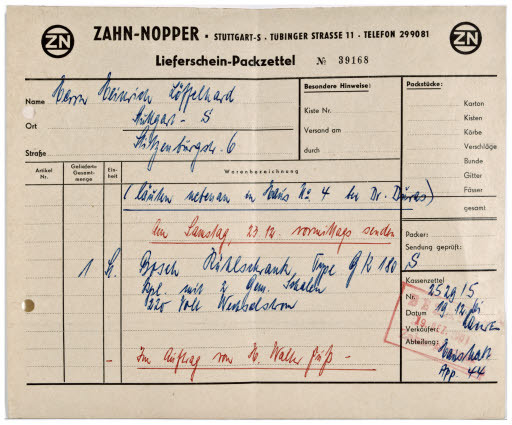 ZN ZAHN-NOPPER · STUTTGART-S · TÜBINGER STRASSE 11 · TELEFON 299081 ZN
Lieferschein-Packzettel № 39168
Name Herrn Heinrich Löffelhard
Ort Stuttgart-S
Straße Stitzenburgstr. 6
Besondere Hinweise:
Kiste Nr.
Versand am
durch
Packstücke:
Karton
Kisten
Körbe
Verschläge
Bunde
Gitter
Fässer
gesamt
Artikel Nr. Geliefert Gesamtmenge Einheit Warenbezeichnung
(läuten nebenan in Haus No 4 bei Dr. )
Am Samstag, 23.12. vormittags senden
1 St. Bosch Kühlschrank, Type GK 180 S
kpl. mit 2 Gem. Schalen
220 Volt Wechselstrom
- Im Auftrag von H. Walter -
Packer:
Sendung geprüft:
Kassenzettel
Nr. 252915
Datum 19.12.
Verkäufer:
Abteilung: Haushalt
App. 44